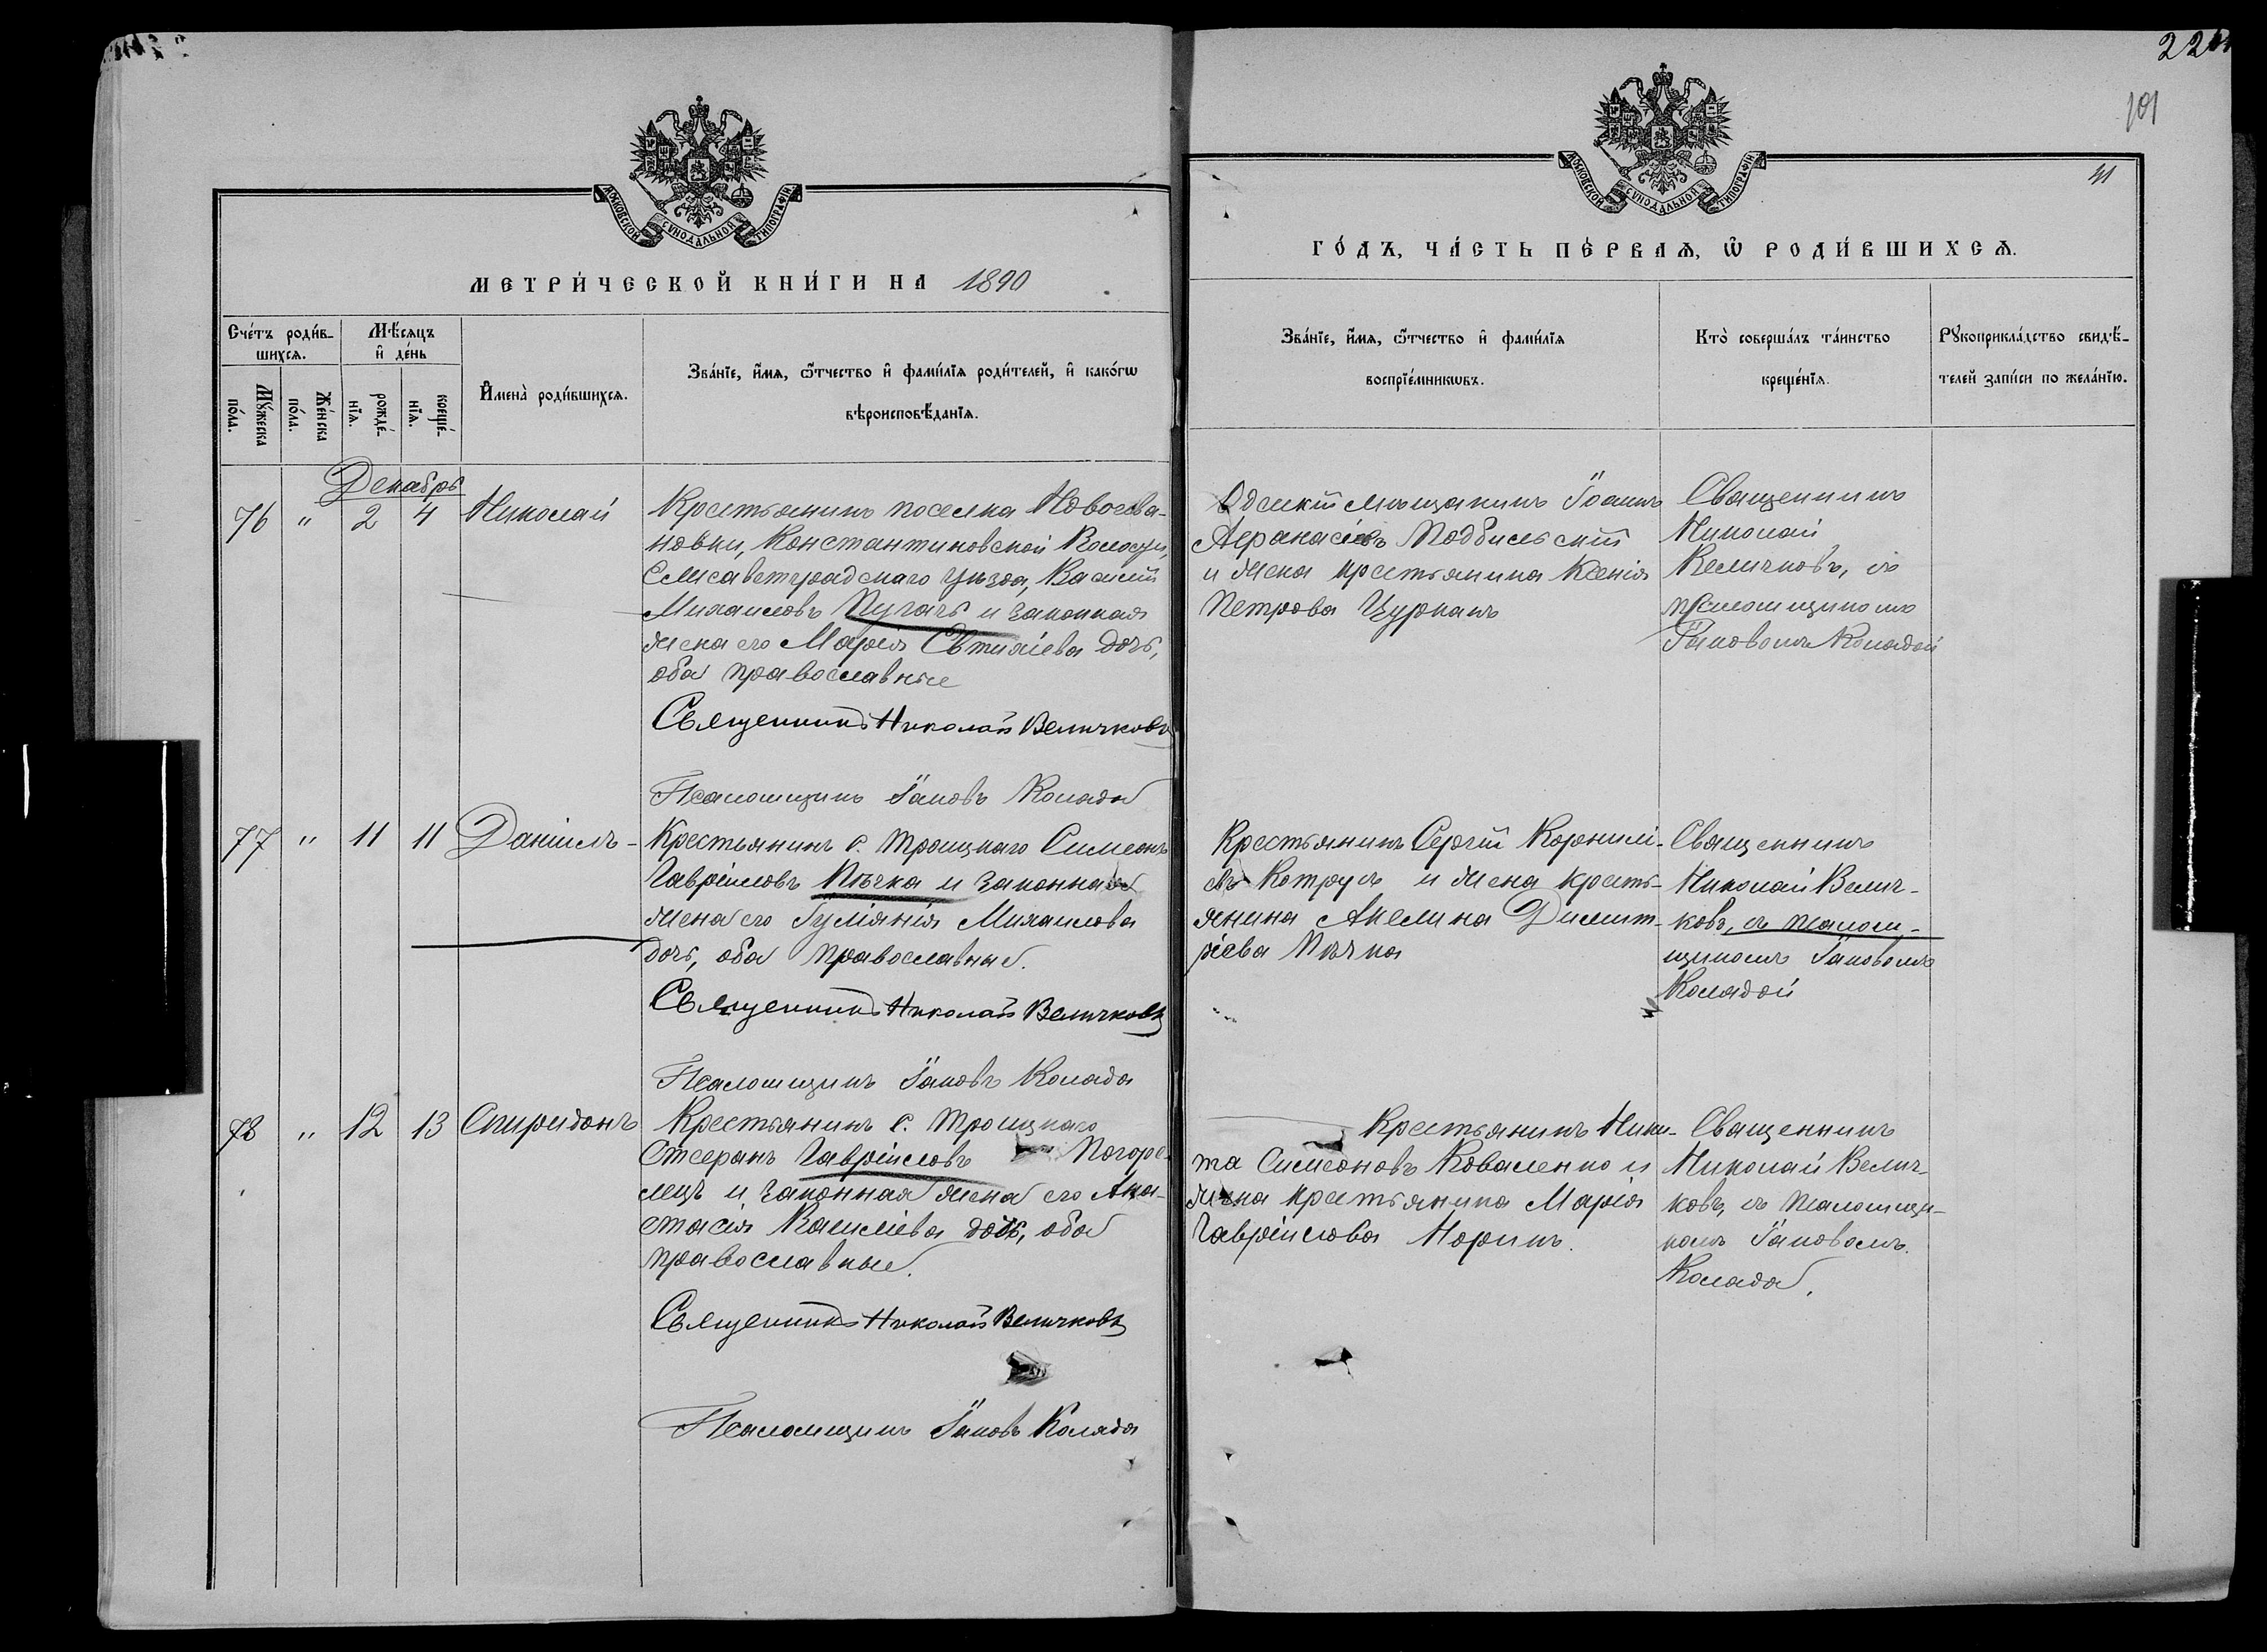 224
101
41
МОСКОВСКОЙ СѴНОДАЛЬНОЙ ТИПОГРАФІИ
МЕТРИ́ЧЕСКОЙ КНИ́ГИ НА 1890
Сче́тъ роди́в-
шихсѧ.
Мѣ́сѧцъ
и҆ де́нь
Мꙋ́жеска
по́ла.
Же́нска
по́ла.
рожде́-
нїѧ.
креще́-
нїѧ.
И҆мена̀ роди́вшихсѧ.
Зва́нїе, и҆́мѧ, ѻ҆́тчество и҆ фами́лїѧ роди́телей, и҆ како́гѡ
вѣроисповѣ́данїѧ.
Декабрь
76 " 2 4 Николай
Крестьянинъ поселка Новоева-
новки, Константиновской Волости,
Елисаветградскаго Уѣзда, Василій
Михаиловъ Пугачъ и законная
жена его Марія Евтихіева дочь,
оба православные
Священникъ Николай Величковъ
Псаломщикъ Іаковъ Коляда
77 " 11 11 Даніилъ
Крестьянинъ с. Троицкаго Симеонъ
Гавріиловъ Пѣчка и законная
жена его Гуліянія Михаилова
дочь, оба православные.
Священникъ Николай Величковъ
Псаломщикъ Іаковъ Коляда
78 " 12 13 Спиридонъ
Крестьянинъ с. Троицкаго
Стефанъ Гавріиловъ Погоре-
лецъ и законная жена его Ана-
стасія Василіева дочь, оба
православные.
Священникъ Николай Величковъ
Псаломщикъ Іаковъ Коляда
МОСКОВСКОЙ СѴНОДАЛЬНОЙ ТИПОГРАФІИ
ГО́ДЪ, ЧА́СТЬ ПЕ́РВАѦ, Ѡ҆ РОДИ́ВШИХСѦ.
Зва́нїе, и҆́мѧ, ѻ҆́тчество и҆ фами́лїѧ
воспрїе́мникѡвъ.
Кто̀ соверша́лъ та́инство
креще́нїѧ.
Рꙋкоприкла́дство свидѣ́-
телей за́писи по жела́нїю.
Одескій мѣщанинъ Іоаннъ
Афанасіевъ Подбильскій
и жена крестьянина Ксенія
Петрова Цурканъ
Священникъ
Николай
Величковъ, съ
псаломщикомъ
Іаковомъ Колядой
Крестьянинъ Сергій Корнилі-
евъ Котрусъ и жена кресть-
янина Акелина Димит-
ріева Пѣчка
Священникъ
Николай Велич-
ковъ, съ псалом-
щикомъ Іаковомъ
Колядой
Крестьянинъ Ники-
та Симеоновъ Коваленко и
жена крестьянина Марія
Гавріилова Норикъ.
Священникъ
Николай Велич-
ковъ, съ псаломщи-
комъ Іаковомъ.
Коляда.